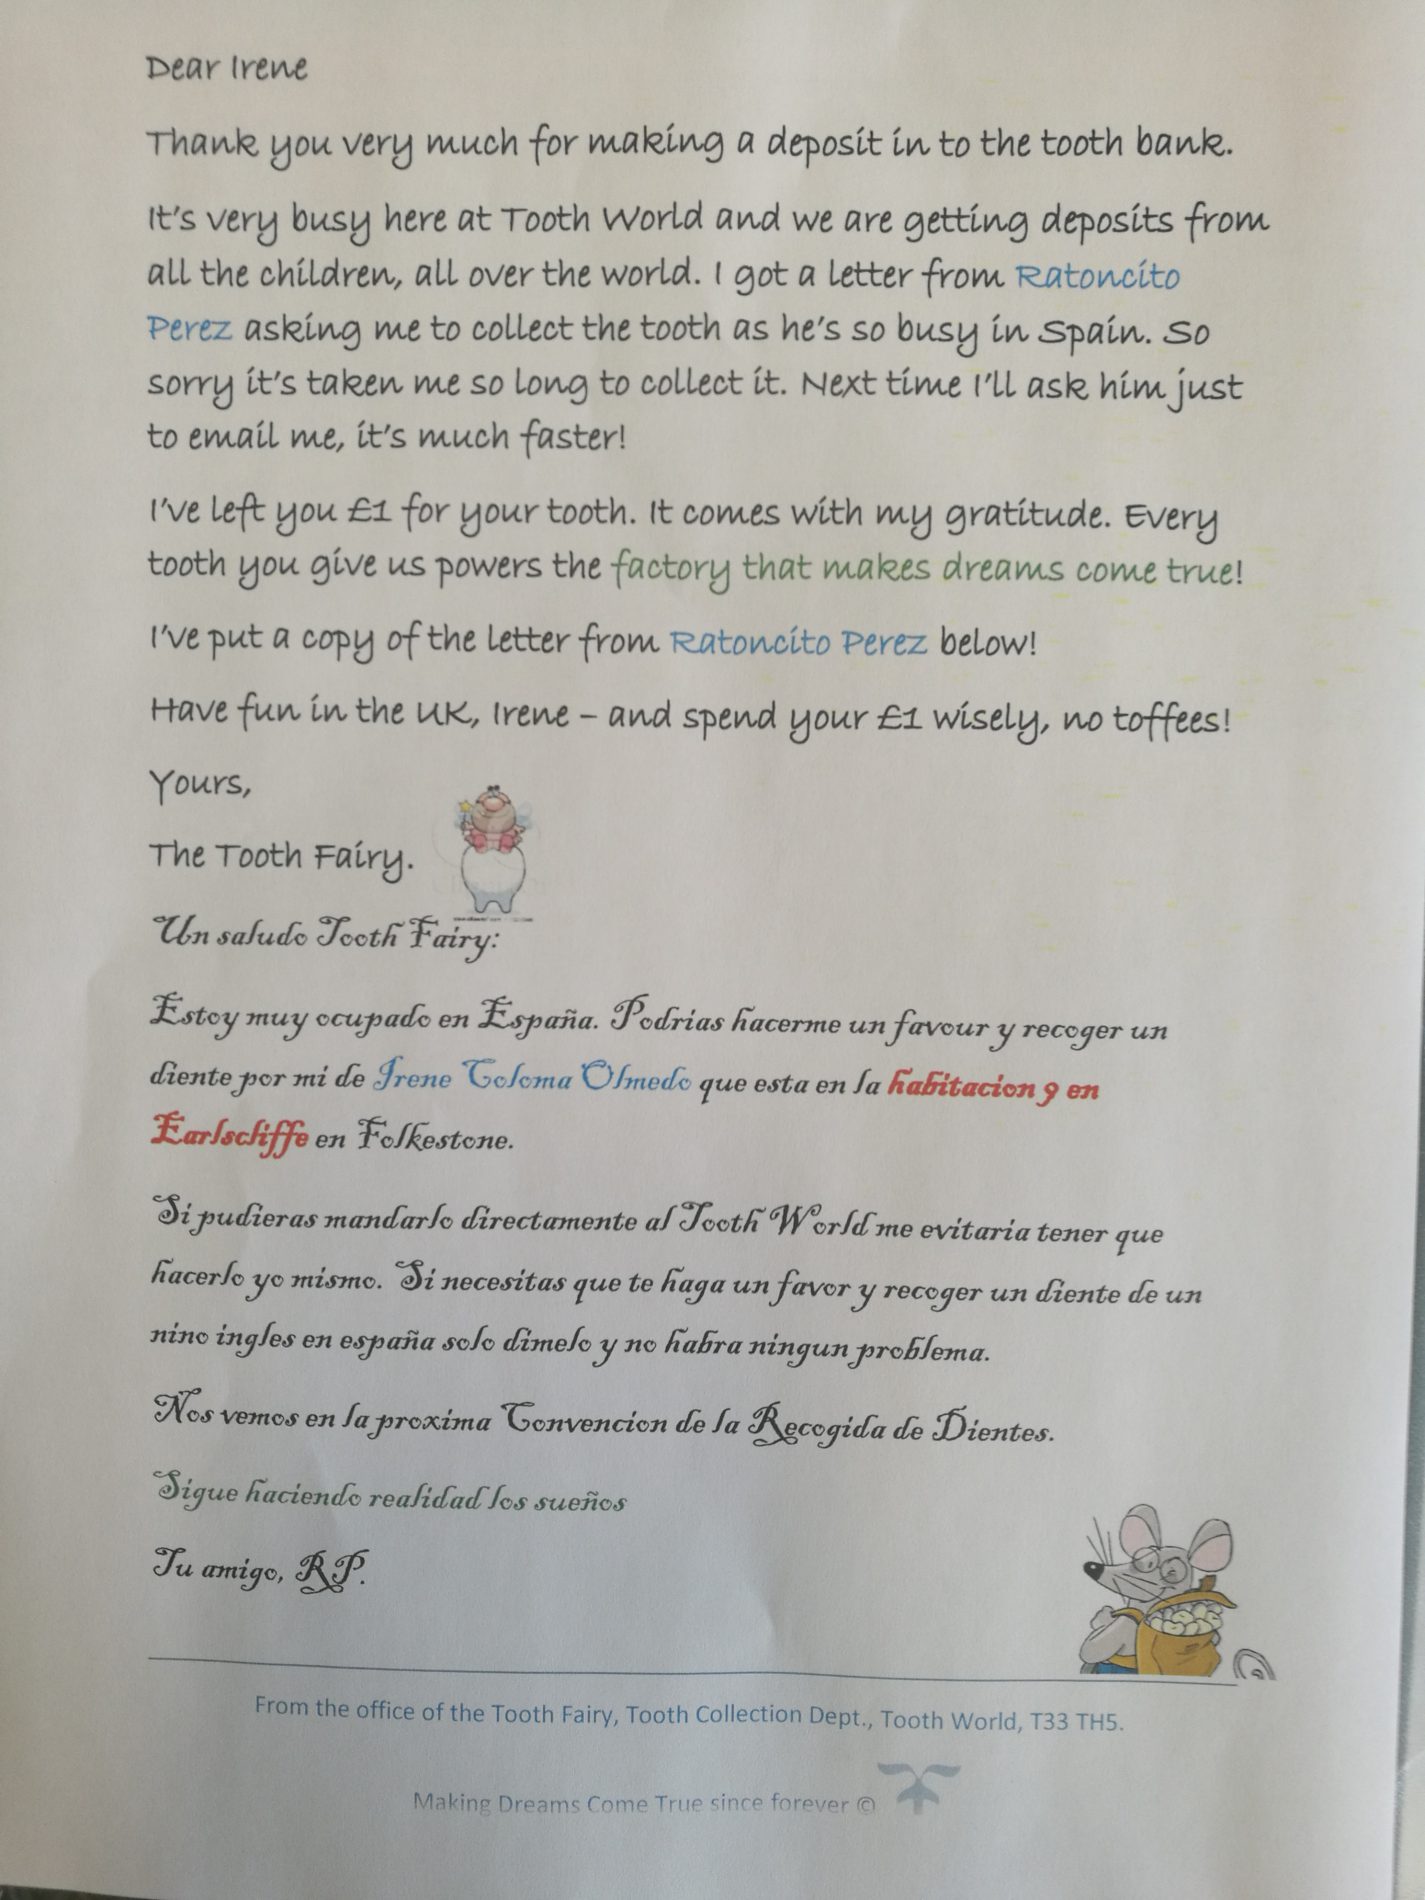 Dear Irene
Thank you very much for making a deposit in to the tooth bank.
It's very busy here at Tooth World and we are getting deposits from
all the children, all over the world. I got a letter from Ratoncito
Perez asking me to collect the tooth as he's so busy in Spain. So
sorry it's taken me so long to collect it. Next time I'll ask him just
to email me, it's much faster!
I've left you £1 for your tooth. It comes with my gratitude. Every
tooth you give us powers the factory that makes dreams come true!
I've put a copy of the letter from Ratoncito Perez below!
Have fun in the UK, Irene – and spend your £1 wisely, no toffees!
Yours,
The Tooth Fairy.
Un saludo Tooth Fairy:
Estoy muy ocupado en España. Podrias hacerme un favour y recoger un
diente por mi de Irene Coloma Olmedo que esta en la habitacion 9 en
Earlscliffe en Folkestone.
Si pudieras mandarlo directamente al Tooth World me evitaria tener que
hacerlo yo mismo. Si necesitas que te haga un favor y recoger un diente de un
nino ingles en españa solo dimelo y no habra ningun problema.
Nos vemos en la proxima Convencion de la Recogida de Dientes.
Sigue haciendo realidad los sueños
Tu amigo, RP.
From the office of the Tooth Fairy, Tooth Collection Dept., Tooth World, T33 TH5.
Making Dreams Come True since forever ©